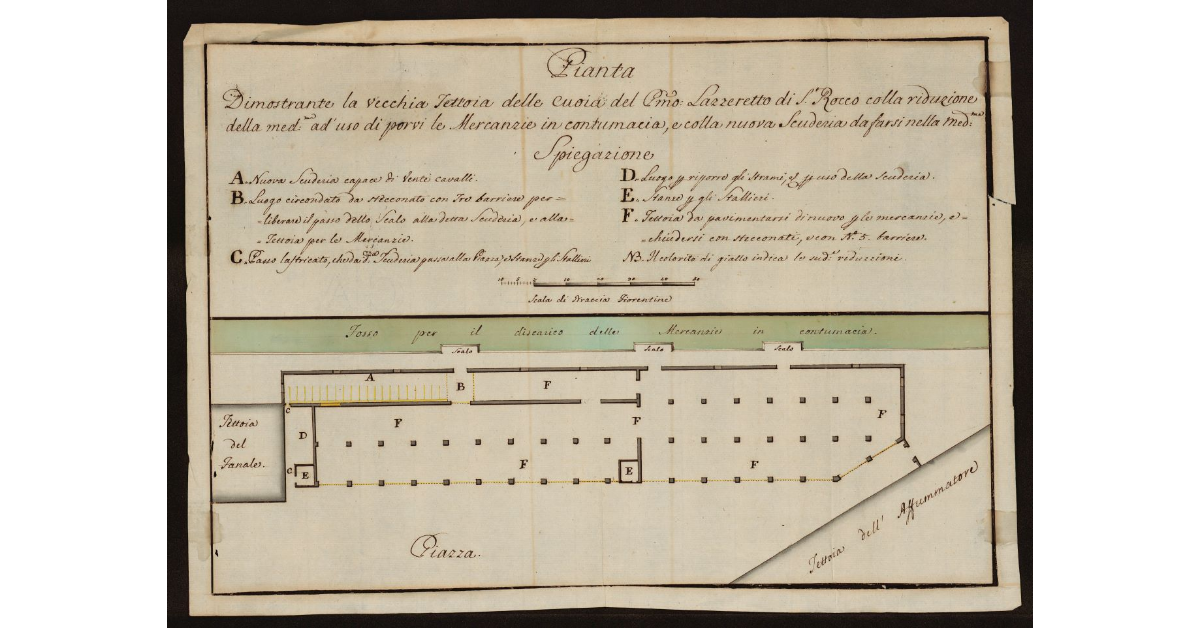 Pianta
Dimostrante la vecchia Tettoia delle cuoia del Pmo: Lazzeretto di S.n Rocco colla riduzione
della med.ma ad'uso di porvi le Mercanzie in contumacia, e colla nuova Scuderia da farsi nella med:ma
Spiegazione
A. Nuova Scuderia capace di Venti cavalli.
B. Luogo circondato da stecconato con Tre barriere per=
=liberare il passo dello Scalo alla detta Scuderia, e alla=
=Tettoia per le Mercanzie.
C. Passo lastricato, che da d.a Scuderia passa alla Piazza, e Stanze p gli Stallieri
D. Luogo p riporre gli Strami, p uso della Scuderia.
E. Stanze p gli Stallieri.
F. Tettoia da pavimentarsi di nuovo p le mercanzie, e=
=chiudersi con stecconati, e con N.o 5. barriere.
NB. Il colorito di giallo indica le sud.e riduzioni.
10 5 10 20 30 40 50
Scala di Braccia Fiorentine
Fosso per il discarico delle Mercanzie in contumacia.
Scalo Scalo Scalo
A B F
C
F F F
D
Tettoia
del
Fanale.
C E F E F
Piazza.
Tettoia dell' Affummatore